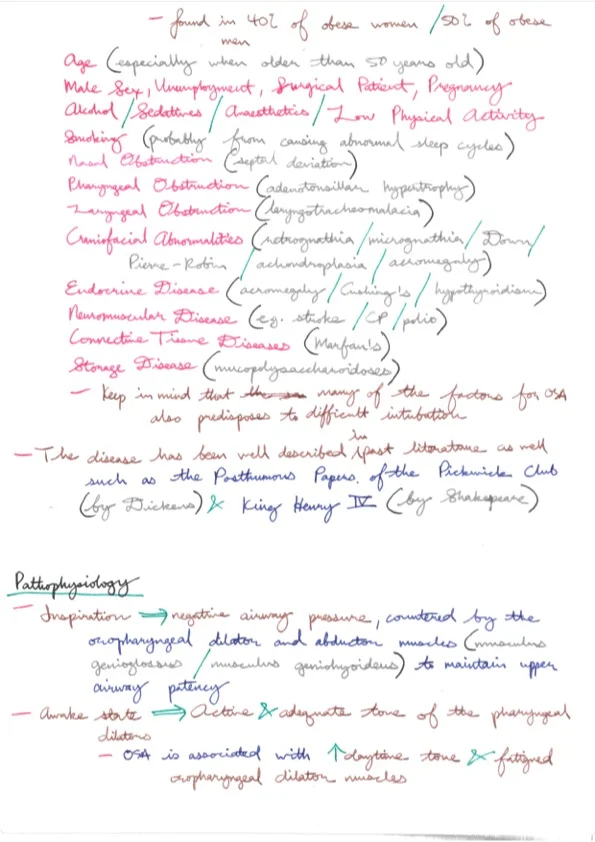 - found in 40% of obese women / 50% of obese
men
Age (especially when older than 50 years old)
Male Sex, Unemployment, Surgical Patient, Pregnancy
Alcohol / Sedatives / Anaesthetics / Low Physical Activity
Smoking (probably from causing abnormal sleep cycles)
Nasal Obstruction (septal deviation)
Pharyngeal Obstruction (adenotonsillar hypertrophy)
Laryngeal Obstruction (laryngotracheomalacia)
Craniofacial Abnormalities (retrognathia / micrognathia / Down /
Pierre-Robin / achondroplasia / acromegaly)
Endocrine Disease (acromegaly / Cushing's / hypothyroidism)
Neuromuscular Disease (eg. stroke / CP / polio)
Connective Tissue Diseases (Marfan's)
Storage Disease (mucopolysaccharoidoses)
- Keep in mind that many of the factors for OSA
also predisposes to difficult intubation
- The disease has been well described in past literature as well
such as the Posthumous Papers of the Pickwick Club
(by Dickens) & King Henry IV (by Shakespeare)
Pathophysiology
- Inspiration ⇒ negative airway pressure, countered by the
oropharyngeal dilator and abductor muscles (musculus
genioglossus / musculus geniohyoideus) to maintain upper
airway patency
- Awake state ⇒ Active & adequate tone of the pharyngeal
dilators
- OSA is associated with ↑ daytime tone & fatigued
oropharyngeal dilator muscles